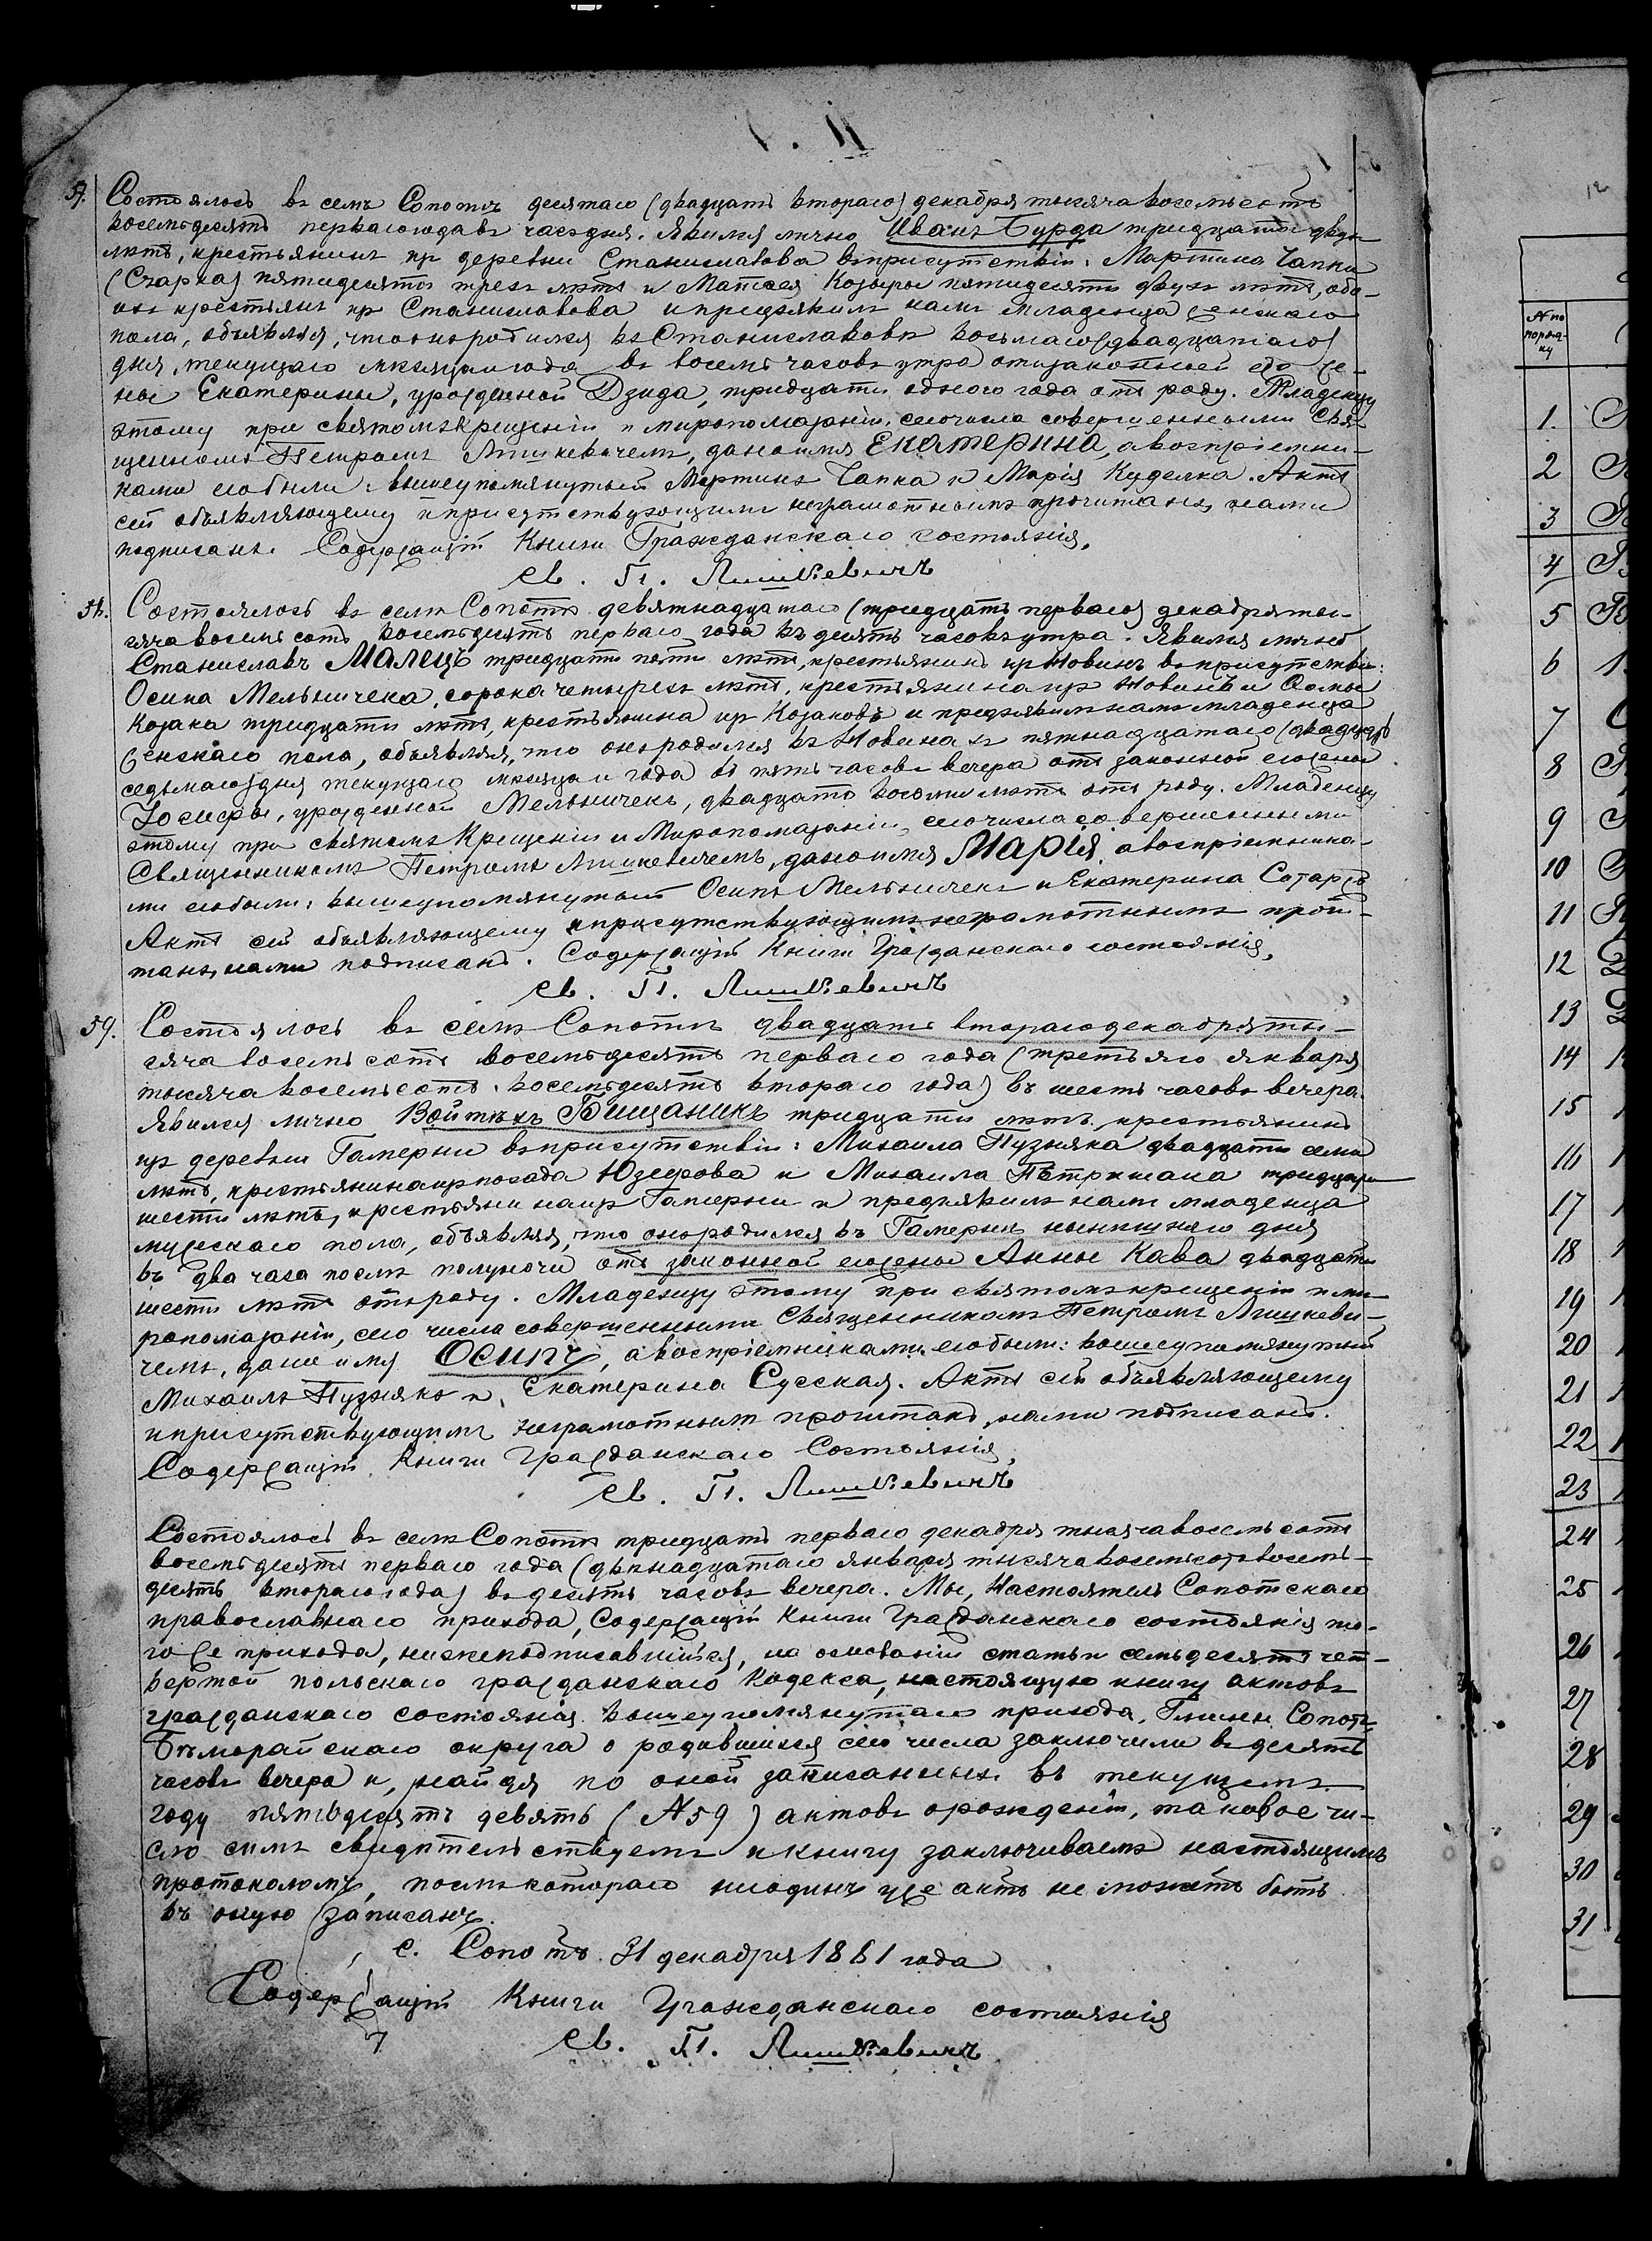 57. Состоялось въ селѣ Сопотѣ десятаго (двадцать втораго) декабря тысяча восемьсотъ
восемьдесятъ перваго года въ часъ дня. Явился лично Иванъ Бурда тридцати двухъ
лѣтъ, крестьянинъ изъ деревни Станиславова въ присутствіи: Мартина Чапки
(Старка) пятидесяти трехъ лѣтъ и Матвея Козыры пятидесяти двухъ лѣтъ, обо-
ихъ крестьянъ изъ Станиславова и предъявилъ намъ младенца женскаго
пола, объявляя, что оно родился въ Станиславовѣ восьмаго (двадцатаго)
дня, текущаго мѣсяца и года въ восемь часовъ утра отъ законной его же-
ны Екатерины, урожденной Дзида, тридцати одного года отъ роду. Младенцу
этому при святомъ крещеніи и миропомазаніи, сего числа совершенными Свя-
щенникомъ Петромъ Лишкевичемъ, дано имя Екатерина, а воспріемни-
ками его были: вышеупомянутый Мартинъ Чапка и Марія Куделка. Актъ
сей объявляющему и присутствующимъ неграмотнымъ прочитанъ, нами
подписанъ. Содержащій Книги Гражданскаго состоянія,
Св. П. Лишкевичъ
58. Состоялось въ селѣ Сопотѣ девятнадцатаго (тридцать перваго) декабря ты-
сяча восемьсотъ восемьдесятъ перваго года въ десять часовъ утра. Явился лично
Станиславъ Малецъ тридцати пяти лѣтъ, крестьянинъ изъ Новинъ въ присутствіи:
Осипа Мельничека, сорока четырехъ лѣтъ, крестьянина изъ Новинъ и Ѳомы
Козака тридцати лѣтъ, крестьянина изъ Козаковъ и предъявилъ намъ младенца
женскаго пола, объявляя, что оно родился въ Новинахъ пятнадцатаго (двадцать
седьмаго) дня текущаго мѣсяца и года въ пять часовъ вечера отъ законной его жены
Юзефы, урожденной Мельничекъ, двадцати восьми лѣтъ отъ роду. Младенцу
этому при святомъ Крещеніи и Миропомазаніи, сего числа совершенными
Священникомъ Петромъ Лишкевичемъ, дано имя Марія, а воспріемника-
ми его были: вышеупомянутый Осипъ Мельничекъ и Екатерина
Актъ сей объявляющему и присутствующимъ неграмотнымъ прочи-
танъ, нами подписанъ. Содержащій Книги Гражданскаго состоянія,
Св. П. Лишкевичъ
59. Состоялось въ селѣ Сопотѣ двадцать втораго декабря ты-
сяча восемьсотъ восемьдесятъ перваго года (третьяго января
тысяча восемьсотъ восемьдесятъ втораго года) въ шесть часовъ вечера.
Явился лично Войтѣхъ Бищаникъ тридцати лѣтъ, крестьянинъ
изъ деревни Гамерни въ присутствіи: Михаила Пузняка двадцати семи
лѣтъ, крестьянина изъ посада Юзефова и Михаила тридцати
шести лѣтъ, крестьянина изъ Гамерни и предъявилъ намъ младенца
мужескаго пола, объявляя, что оно родился въ Гамерни нынѣшняго дня
въ два часа послѣ полуночи отъ законной его жены Анны Кава двадцати
шести лѣтъ отъ роду. Младенцу этому при святомъ крещеніи и ми-
ропомазаніи, сего числа совершенными Священникомъ Петромъ Лишкеви-
чемъ, дано имя Осипъ, а воспріемниками его были: вышеупомянутый
Михаилъ Пузнякъ и Екатерина Сусская. Актъ сей объявляющему
и присутствующимъ неграмотнымъ прочитанъ, нами подписанъ.
Содержащій Книги Гражданскаго Состоянія,
Св. П. Лишкевичъ
Состоялось въ селѣ Сопотѣ тридцать перваго декабря тысяча восемьсотъ
восемьдесятъ перваго года (двѣнадцатаго января тысяча восемьсотъ восемь-
десятъ втораго года) въ десять часовъ вечера. Мы, Настоятель Сопотскаго
православнаго прихода, Содержащій Книги Гражданскаго состоянія то-
го же прихода, нижеподписавшійся, на основаніи статьи семьдесятъ чет-
вертой польскаго гражданскаго Кодекса, настоящую книгу актовъ
гражданскаго состоянія вышеупомянутаго прихода, Гмины Сопотъ,
Бѣлгорайскаго округа о родившихся сего числа заключили въ десять
часовъ вечера и, найдя по оной записанныхъ въ текущемъ
году пятьдесятъ девять (N 59) актовъ о рожденіи, таковое чи-
сло симъ свидѣтельствуемъ и книгу заключиваемъ настоящимъ
протоколомъ, послѣ котораго ни одинъ уже актъ не можетъ быть
въ оную записанъ.
с. Сопотъ 31 декабря 1881 года
Содержащій Книги Гражданскаго состоянія
Св. П. Лишкевичъ
N по порядку
1.
2
3
4
5
6
7
8
9
10
11
12
13
14
15
16
17
18
19
20
21
22
23
24
25
26
27
28
29
30
31